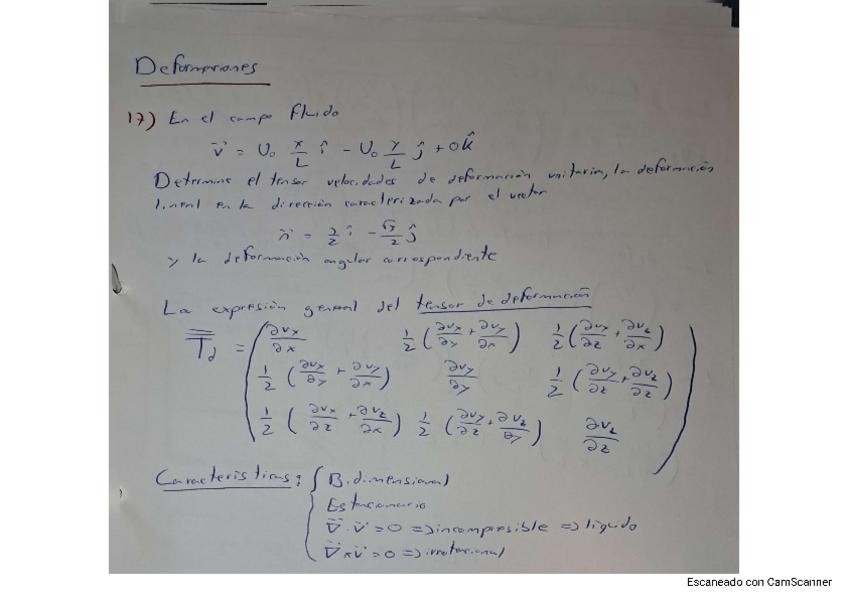 Deformaciones
17) En el campo fluido
v⃗ = U₀ x/L î - U₀ y/L ĵ + 0k̂
Determine el tensor velocidades de deformación unitaria, la deformación
lineal en la dirección caracterizada por el vector
n⃗ = î - √3/2 ĵ
y la deformación angular correspondiente
La expresión general del tensor de deformación
T_d = ( ∂vx/∂x 1/2 (∂vx/∂y + ∂vy/∂x) 1/2 (∂vx/∂z + ∂vz/∂x)
1/2 (∂vx/∂y + ∂vy/∂x) ∂vy/∂y 1/2 (∂vy/∂z + ∂vz/∂z)
1/2 (∂vx/∂z + ∂vz/∂x) 1/2 (∂vy/∂z + ∂vz/∂y) ∂vz/∂z )
Características: { Bidimensional
Estacionario
∇⃗ · v⃗ = 0 => incompresible => líquido
∇⃗ × v⃗ = 0 => irrotacional
Escaneado con CamScanner